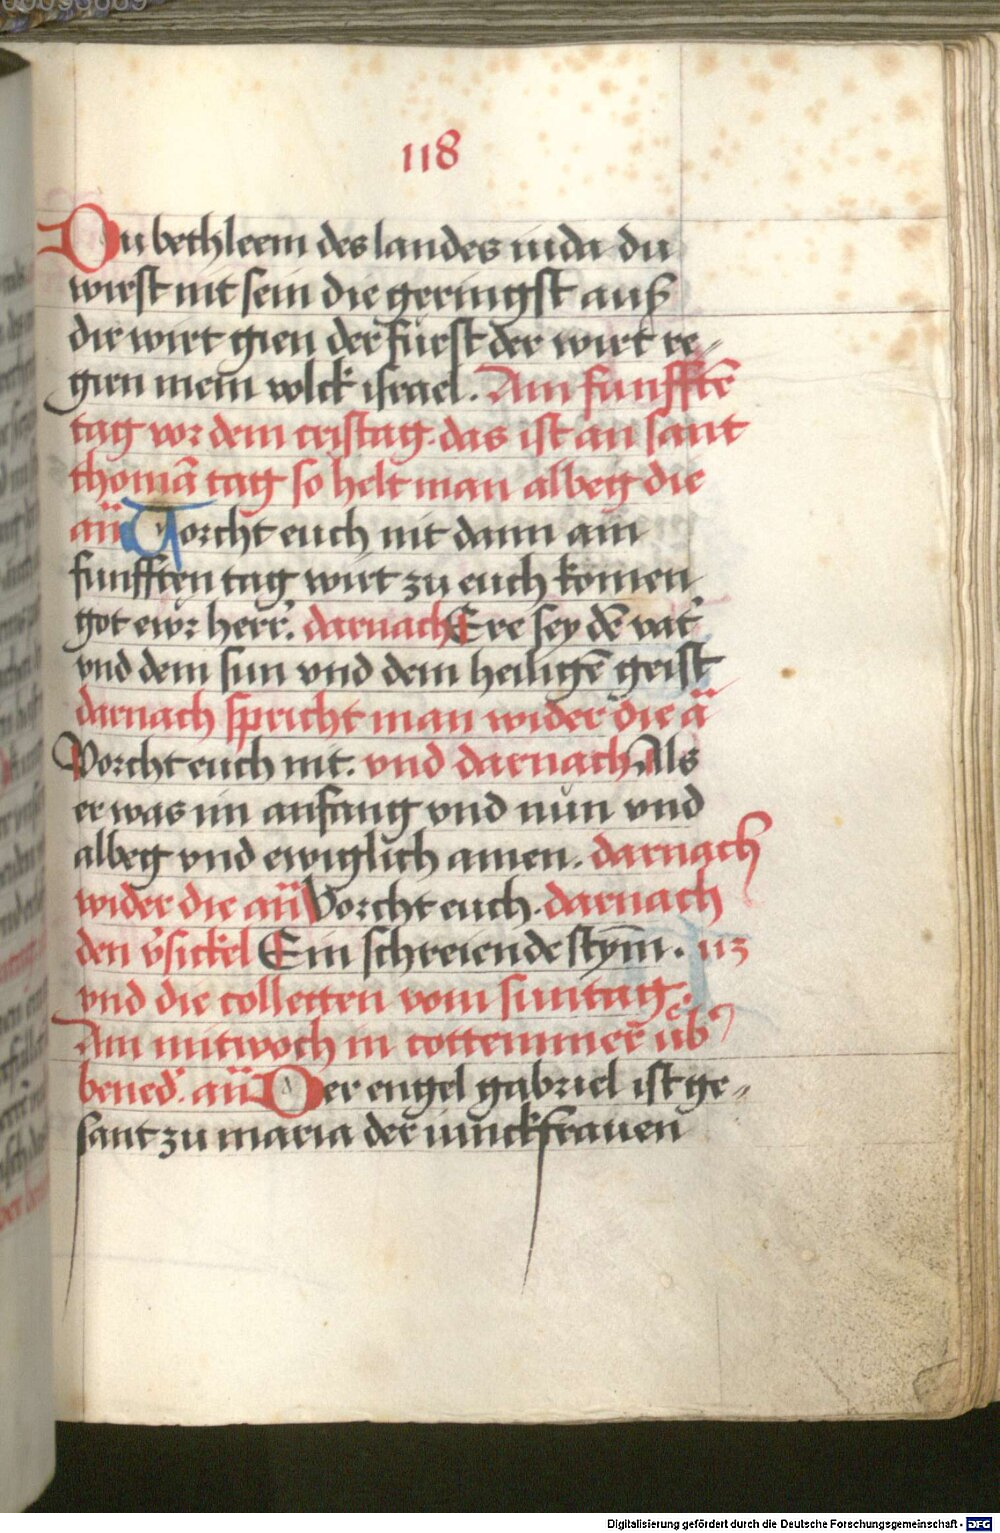 118
Du bethleem des landes iuda du
wirst nit sein die geringst auß
dir wirt gien der fürst der wirt re-
girn mein volck israel. Am funfftē
tag vor dem cristag. das ist an sant
thomā tag so helt man albeg die
añ Vorcht euch nit dann am
funfften tag wirt zu euch komen
got ewr herr. darnach Ere sey dē vat
vnd dem sun vnd dem heiligē geist
darnach spricht man wider die ā
Vorcht euch nit. vnd darnach Als
er was im anfang vnd nun vnd
albeg vnd ewiglich amen. darnach
wider die añ Vorcht euch. darnach
den v̄sickel Ein schreiende stym̄. 113
vnd die collecten vom suntag.
Am mitwoch in cottemmer üb
bened. añ Der engel gabriel ist ge-
sant zu maria der iunckfrauen
Digitalisierung gefördert durch die Deutsche Forschungsgemeinschaft - DFG